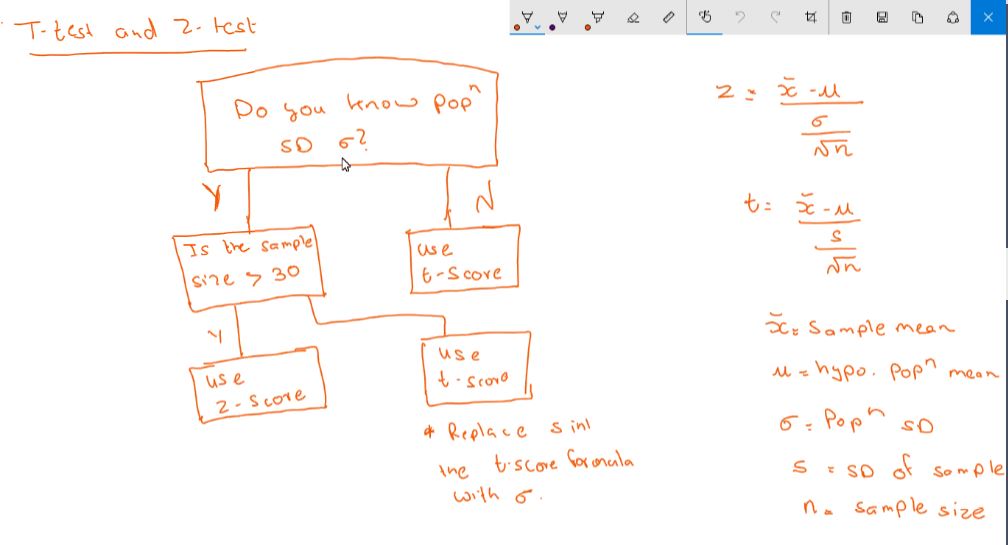 T-test and Z-test
Do you know popⁿ
SD σ?
Y
N
Is the sample
size > 30
use
t-score
Y
use
z-score
use
t-score
* Replace s in
the t-score formula
with σ.
z = x̄ - μ
σ
√n
t = x̄ - μ
s
√n
x̄ = sample mean
μ = hypo. popⁿ mean
σ = Popⁿ SD
s = SD of sample
n = sample size